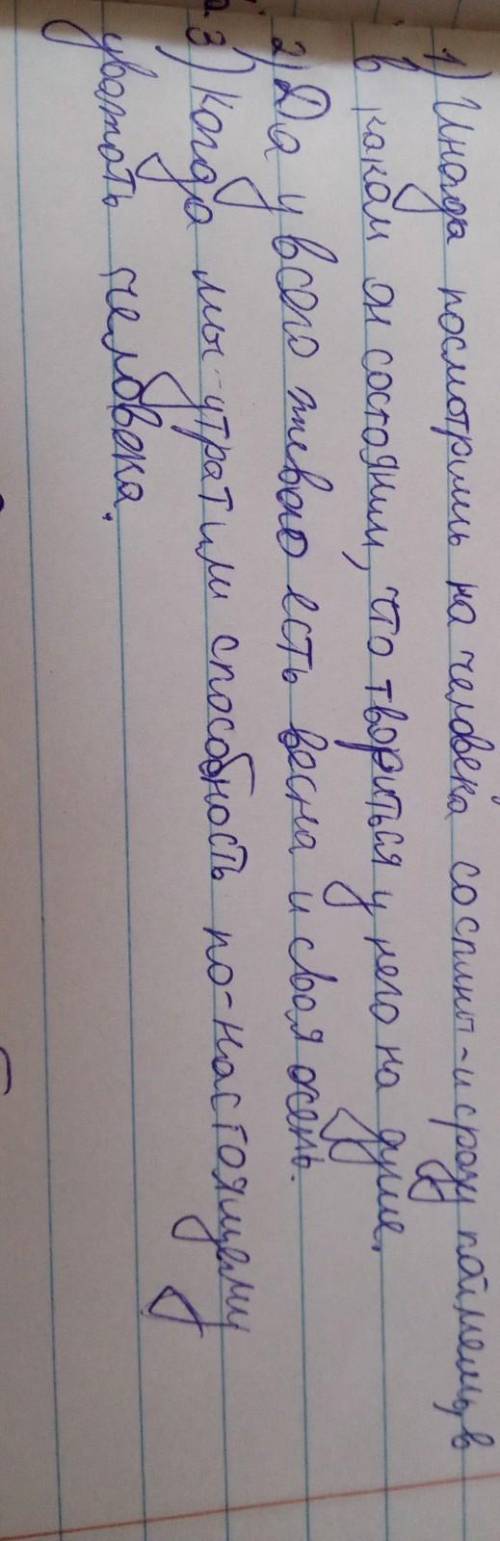 1) Иногда посмотришь на человека со спины - и сразу поймешь, в
в каком он состоянии, что твориться у него на душе.
2) Да у всего живого есть весна и своя осень.
3) Когда мы утратили способность по-настоящему
уважать человека.